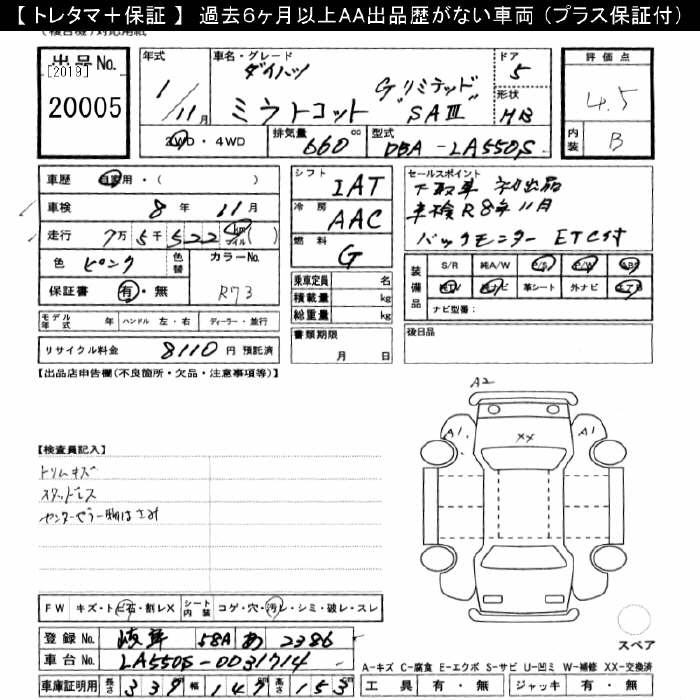 【 トレタマ＋保証 】 過去6ヶ月以上AA出品歴がない車両 (プラス保証付)
出品No.
[2019]
20005
年式
1/11月
車名・グレード
ダイハツ
ミラトコット
Gリミテッド
"SAⅢ"
ドア
5
形状
HB
評価点
4.5
内装
B
2WD・4WD
排気量
660 cc
型式
DBA-LA550S
車歴 自家用・( )
車検 8 年 11 月
走行 7万 5千 522 km マイル ( )
色 ピンク 色替 カラーNo. R73
保証書 有・無
モデル年式 年 ハンドル 左・右 ディーラー・並行
リサイクル料金 8110 円 預託済
シフト IAT
冷房 AAC
燃料 G
乗車定員 名
積載量 kg
総重量 kg
書類期限
月 日
セールスポイント
下取車 初出品
車検R8年11月
バックモニター ETC付
装備品
S/R 純A/W P/S P/W ABS
純TV 純ナビ 革シート 外ナビ エアB
ナビ型番：
後日品
【出品店申告欄(不良箇所・欠品・注意事項等)】
【検査員記入】
トリムキズ
スタッドレス
A2
A1
A1
XX
FW キズ・トビ石・割レX シート内装 コゲ・穴・汚レ・シミ・破レ・スレ
登録No. 岐阜 58A あ 2386
車台No. LA550S-0031714
車庫証明用 長さ 339 幅 147 高さ 153
スペア
A-キズ C-腐食 E-エクボ S-サビ U-凹ミ W-補修 XX-交換済
工具 有・無 ジャッキ 有・無